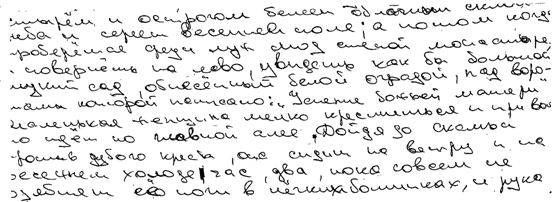 и острогом белеет облачный склон
неба и сереет весеннее поле; а потом когда
проберёшься среди луж под стеной монастыря
и повернёшь на лево, увидишь как бы большой
низкий сад, обнесённый белой оградой, над воро-
тами которой написано: „Успение божьей матери
маленькая женщина мелко крестится и привы
но идёт по главной алее. Дойдя до скамьи
против дубого креста, она сидит на ветру и на
весеннем холоде час, два, пока совсем не
зазябнет её ноги в лёгких ботинках, и рука